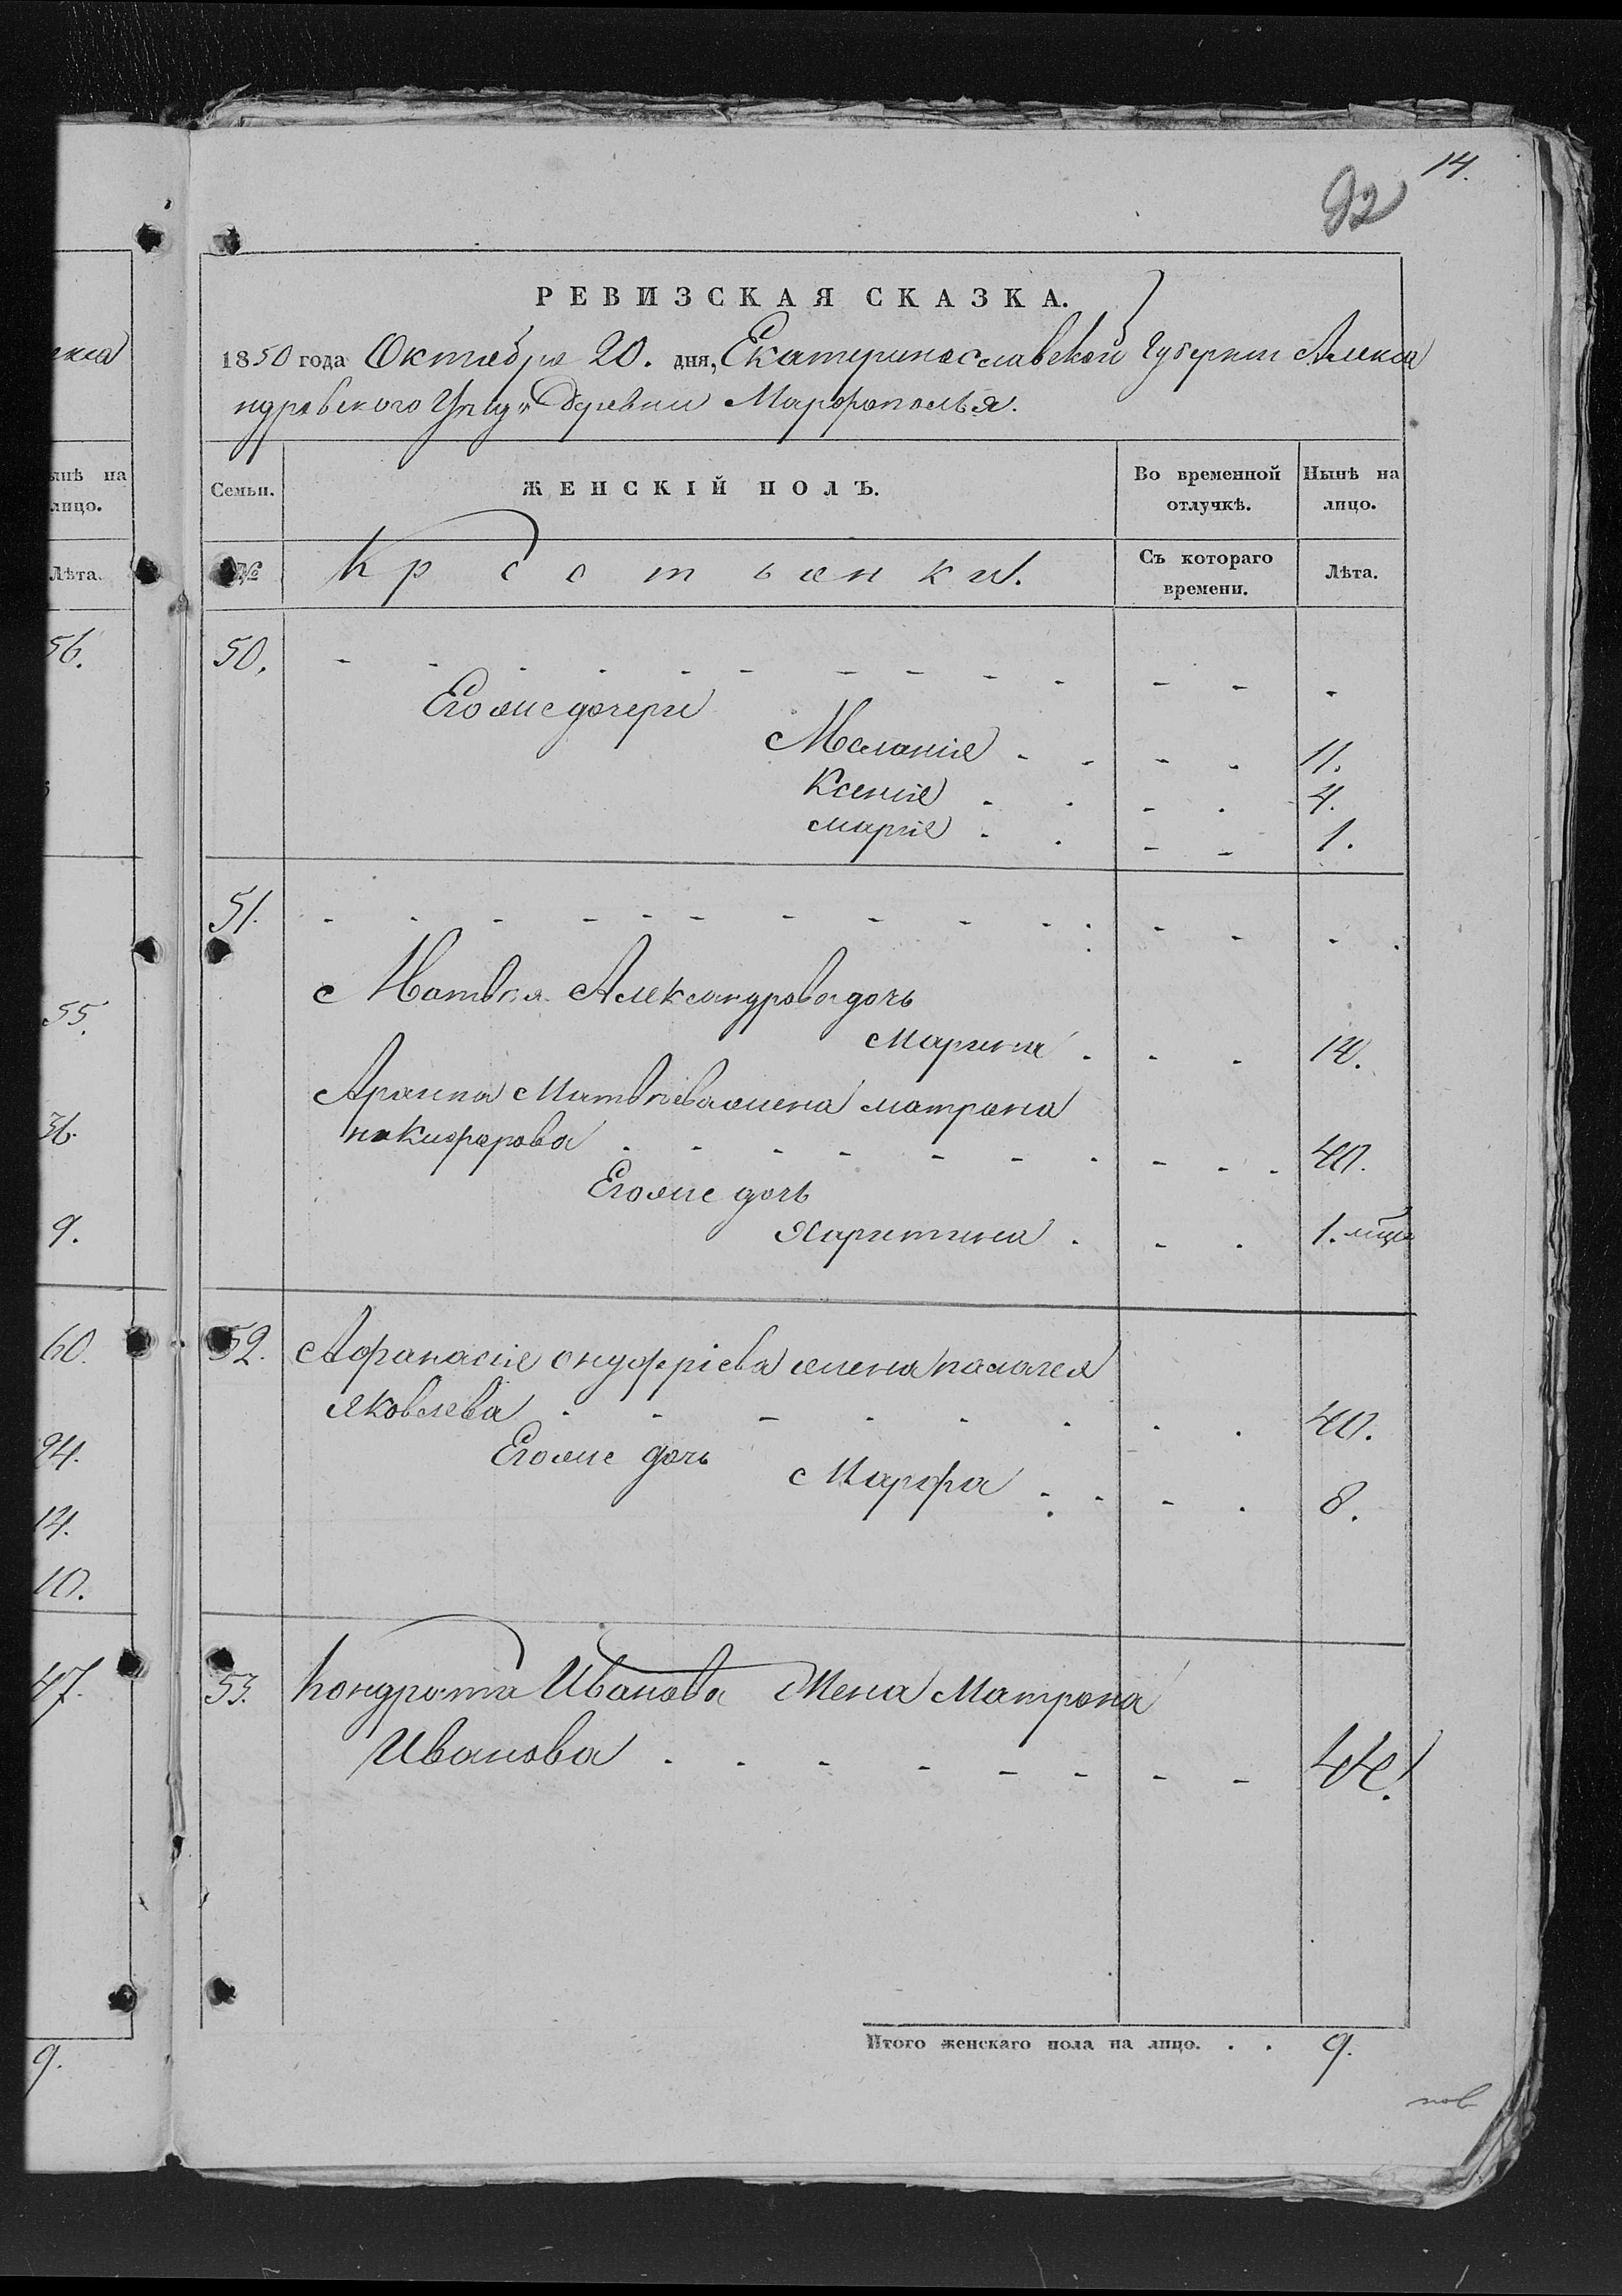 14.
92
РЕВИЗСКАЯ СКАЗКА.
1850 года Октября 20. дня, Екатеринославской Губернии Алекса
ндровского Уезда Деревни Марфополья.
Семьи.
ЖЕНСКІЙ ПОЛЪ.
Во временной отлучкѣ.
Нынѣ на лицо.
№
Крестьянки.
Съ котораго времени.
Лѣта.
50.
Егоже дочери
Меланія - - - - 11.
Ксенія - - - - 4.
Марія - - - - 1.
51.
Матвея Александрова дочь
Марина - - - 14.
Матвѣева жена матрона
никифорова - - - - - - - - - - 40.
Егоже дочь
Харитина - - - 1. мца
52. Афанасія онуфріева жена палагея
Яковлева - - - - - - - - 40.
Егоже дочь
Марфа - - - - 8.
53. Кондрата Иванова Жена Матрона
Иванова - - - - - - - - 44.
Итого женскаго пола на лицо. . . 9.
нѣ на
лицо.
Лѣта.
56.
55.
36.
9.
60.
24.
14.
10.
47.
9.